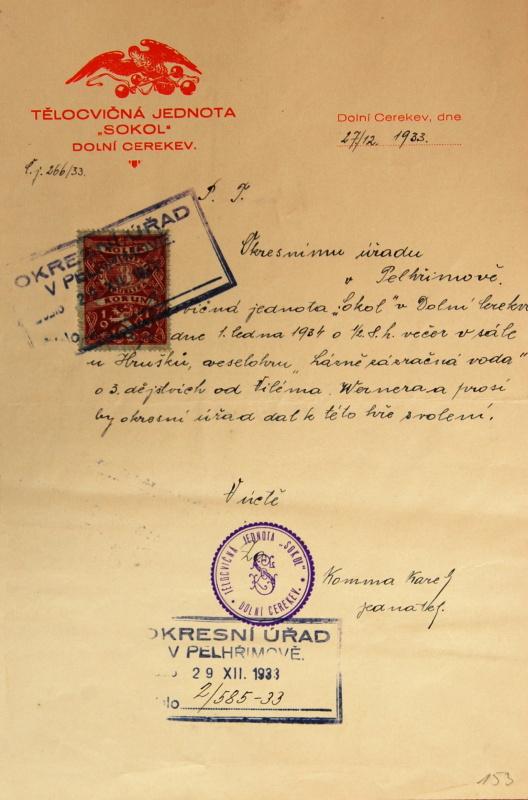 TĚLOCVIČNÁ JEDNOTA
„SOKOL“
DOLNÍ CEREKEV.
Dolní Cerekev, dne
27/12. 1933.
Č.j. 266/33.
P. T.
OKRESNÍ ÚŘAD
V PELHŘIMOVĚ.
Okresnímu úřadu
v Pelhřimově.
jednota „Sokol“ v Dolní Cerekvi
dne 1. ledna 1934 o 1/2 8. h. večer v sále
u Hrušků, veselohru „Lázně zázračná voda“
o 3. dějstvích od Viléma Wernera a prosí
by okresní úřad dal k této hře svolení.
V úctě
TĚLOCVIČNÁ JEDNOTA „SOKOL“
DOLNÍ CEREKEV.
Komma Karel
jednatel.
OKRESNÍ ÚŘAD
V PELHŘIMOVĚ.
29 XII. 1933
2/585-33
153